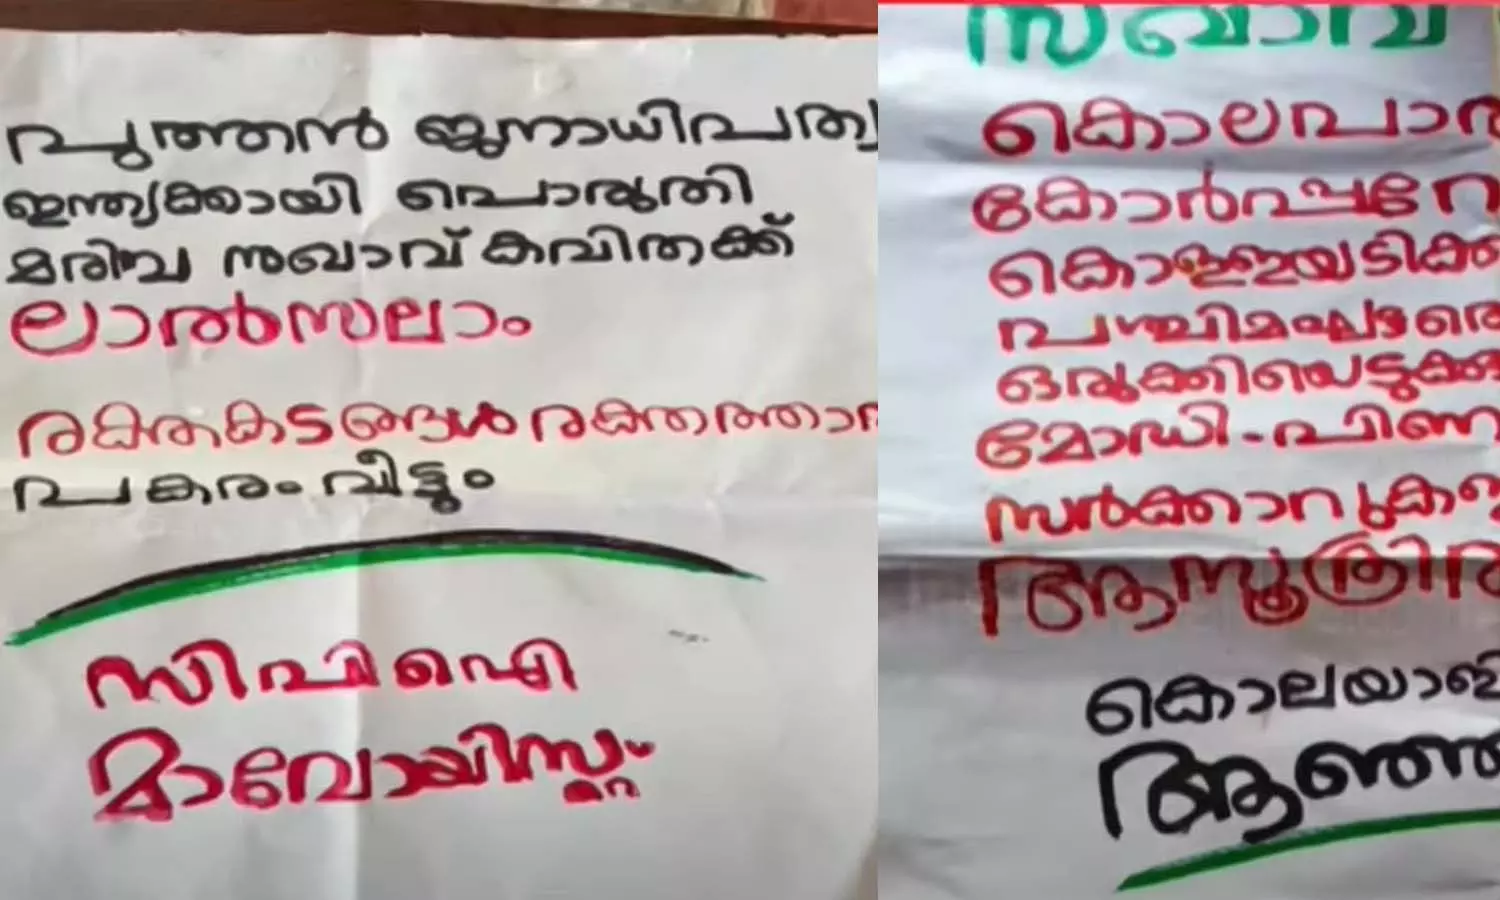 പുത്തൻ ജനാധിപത്യ
ഇന്ത്യക്കായി പൊരുതി
മരിച്ച സഖാവ് കവിതക്ക്
ലാൽസലാം
രക്തകടങ്ങൾ രക്തത്താ
പകരം വീട്ടും
സിപിഐ
മാവോയിസ്റ്റ്
സഖാവ്
കൊലപാത
കോർപ്പറേ
കൊള്ളയടിക്ക
പശ്ചിമഘട്ടത്തെ
ഒരുക്കിയെടുക്ക
മോഡി-പിണ
സർക്കാറുക
ആസൂത്രിത
കൊലയാളി
ആഞ്ഞ